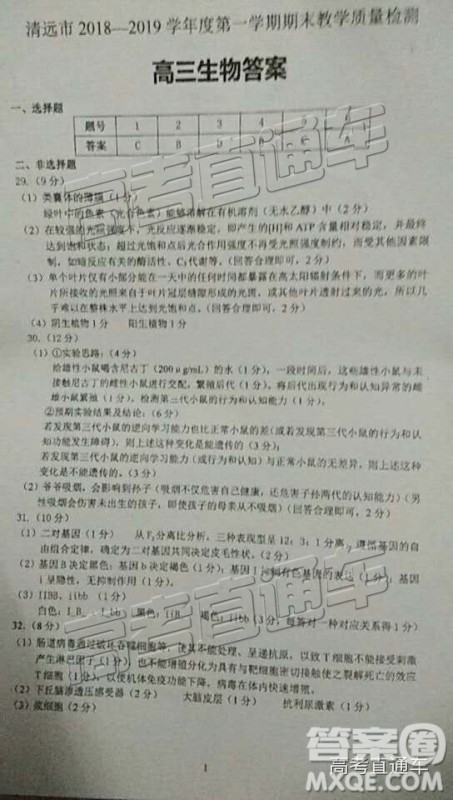 清远市 2018—2019 学年度第一学期期末教学质量检测
高三生物答案
一、选择题
题号 1 2 3 4 5 6
答案 C B D B C A
二、非选择题
29.（9分）
（1）类囊体的薄膜（1分）
绿叶中的色素（光合色素）能够溶解在有机溶剂（无水乙醇）中（2分）
（2）在较强的光照强度下，光反应逐渐稳定，即产生的[H]和ATP含量相对稳定，并最终
达到饱和状态；超过光饱和点后光合作用强度不再受光照强度制约，而受其他因素限
制，如暗反应有关的酶活性、C₃代谢等。（回答合理即可）（2分）
（3）单个叶片仅有小部分能在一天中的任何时间都暴露在高太阳辐射条件下，而更多的叶
片所接收的光照来自于叶片冠层缝隙形成的光斑，或其他叶片透射过来的光，所以几
乎难以在整株水平上达到光饱和点。（回答合理即可）（2分）
（4）阴生植物 1分 阳生植物 1分
30.（12分）
（1）①实验思路：（4分）
给雄性小鼠喝含尼古丁（200μg/mL）的水（1分），一段时间后，这些雄性小鼠与未
接触尼古丁的雌性小鼠进行交配，繁殖后代（1分），将产出的后代再与正常的小
鼠繁殖（1分），检测第三代小鼠的行为和认知能力（1分）。
②预期实验结果及结论：（6分）
若发现第三代小鼠的逆向学习能力也比正常小鼠的差（或若发现第三代小鼠的行为和认
知功能发生障碍），则上述这种变化是能遗传的（3分）；
若发现第三代小鼠的逆向学习能力（或行为和认知）与正常小鼠的无差异，则上述这种
变化是不能遗传的。（3分）
（2）爷爷吸烟，会影响到孙子（吸烟不仅危害自己健康，还危害子孙两代的认知能力）（男
性吸烟会伤害未出生的孩子，即使孩子的母亲从不吸烟）（回答合理即可）（2分）
31.（10分）
（1）二对基因（1分） 从F₂分离比分析，三种表现型呈12：3：1（1分），遵循基因的自
由组合定律，确定为二对基因共同决定皮毛性状。（2分）
（2）基因B决定黑色；基因b决定褐色；基因I
i呈隐性，无抑制作用（1分）
（3）IIBB、iibb（1分）
白色： 黑色： 褐色：iibb（3分，每答对一种对应关系得1分）
32.（8分）
（1）肠道病毒通过破坏吞噬细胞等，使其本能处理、呈递抗原，以致T细胞不能被激活
产生淋巴因子（1分），也不能增殖分化为具有与靶细胞密切接触能力的效应T
细胞（1分），从而使机体免疫功能下降，病毒在体内快速增殖。
（2）下丘脑渗透压感受器（2分） 大脑皮层（1分） 抗利尿激素（1分）
（3）浆细胞（2分）
1
高考直通车
高考直通车
答案圈
高考直通车
MXQE.COM